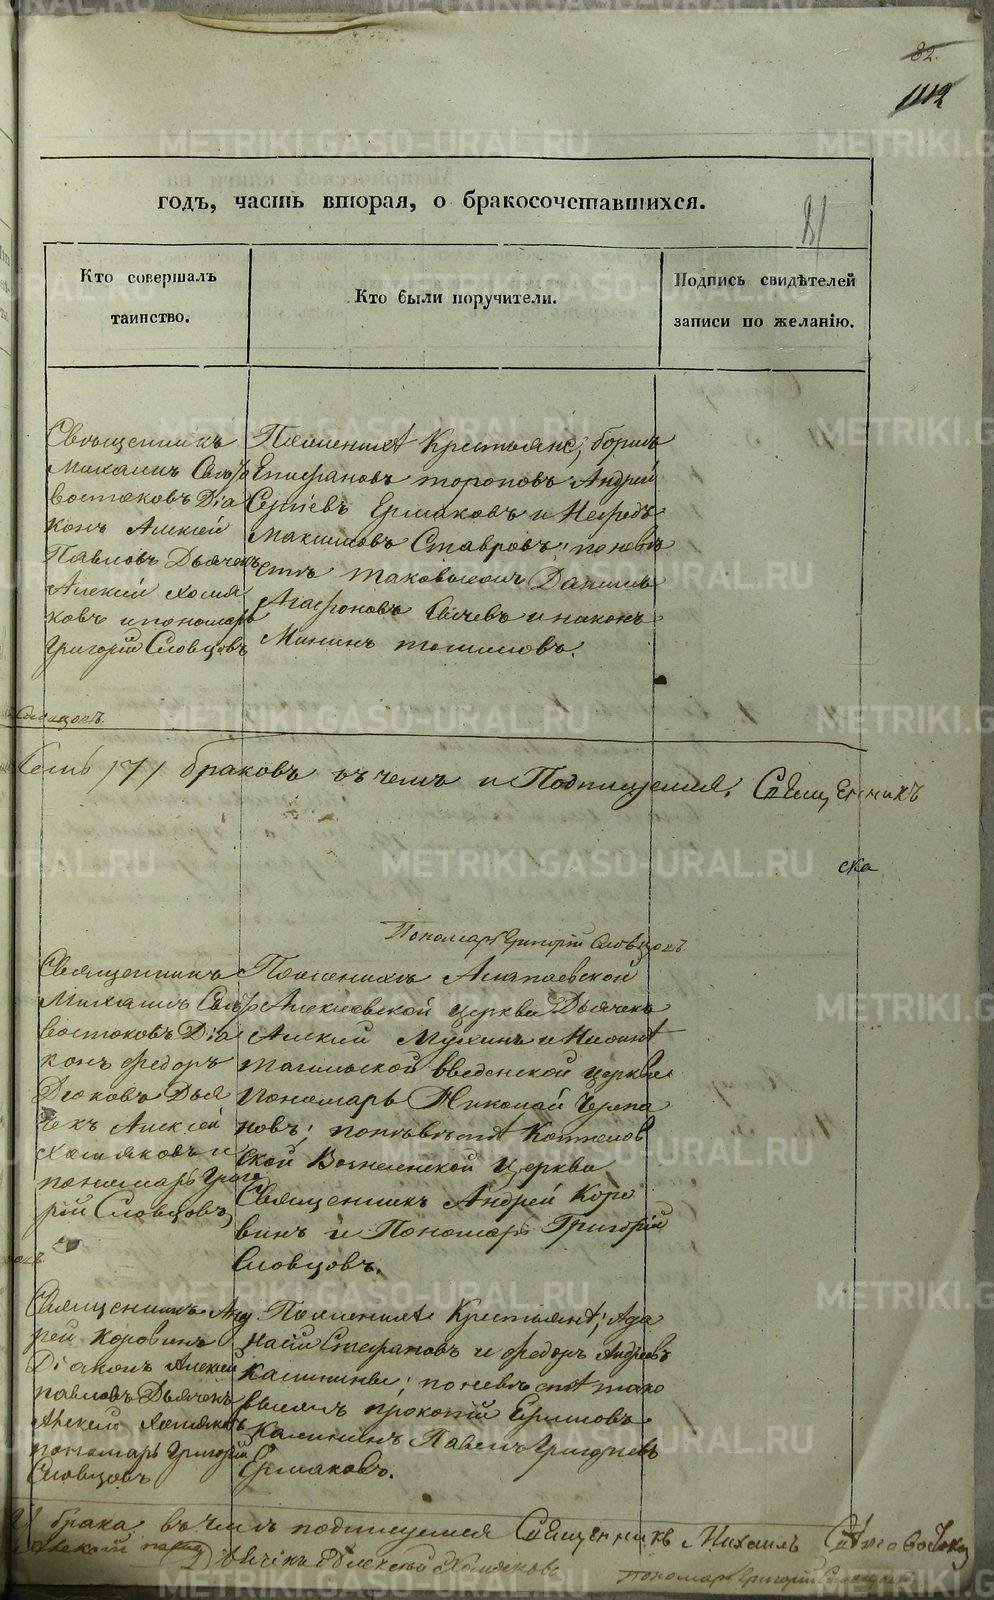 82.
1112
81
годъ, часть вторая, о бракосочетавшихся.
Кто совершалъ
таинство.
Кто были поручители.
Подпись свидѣтелей
записи по желанію.
Священникъ
Михаилъ Свѣто
востоковъ Діа
конъ Алексѣй
Павловъ Дьячекъ
Алексѣй Холмя
ковъ и пономарь
Григорій Словцовъ
По женихѣ Крестьяне, борисъ
Епифановъ тороповъ Андрей
Сергіевъ Ермаковъ и Нефедъ
Максимовъ Ставровъ; по невѣ
стѣ таковыежъ Даниилъ
Агафоновъ Сычевъ и
Мининъ
Словцовъ.
Семь /7/ браковъ въ чемъ и Подпишемся. Священникъ
ска
Пономарь Григорій Словцовъ
Священникъ
Михаилъ Свѣто
востоковъ Діа
конъ федоръ
Дьяковъ Дья
чекъ Алексѣй
Холмяковъ и
пономарь Григо
рій Словцовъ
По женихѣ Алапаевской
Алексіевской церкви Дьячекъ
Алексій Мухинъ и Нижне
тагильской введенской церкви
пономарь Николай Черепа
новъ; по невѣстѣ
ской Вознесенской Церкви
Священникъ Андрей Коро
винъ и Пономарь Григорій
Словцовъ.
Священникъ Анд
рей Коровинъ
Діаконъ Алексѣй
павловъ Дьячекъ
Алексѣй Холмяковъ
пономарь Григорій
Словцовъ
По женихѣ Крестьяне; Афа
насій Стефановъ и федоръ Андреевъ
Калинины; по невѣстѣ тако
выежъ прокопій Ермиловъ
Калининъ Павелъ Григорьевъ
Ермаковъ.
2 брака въ чемъ подпишемся Священникъ Михаилъ Свѣтовостоковъ
Дьячекъ Алексѣй Холмяковъ
Пономарь Григорій Словцовъ
METRIKI.GASO-URAL.RU